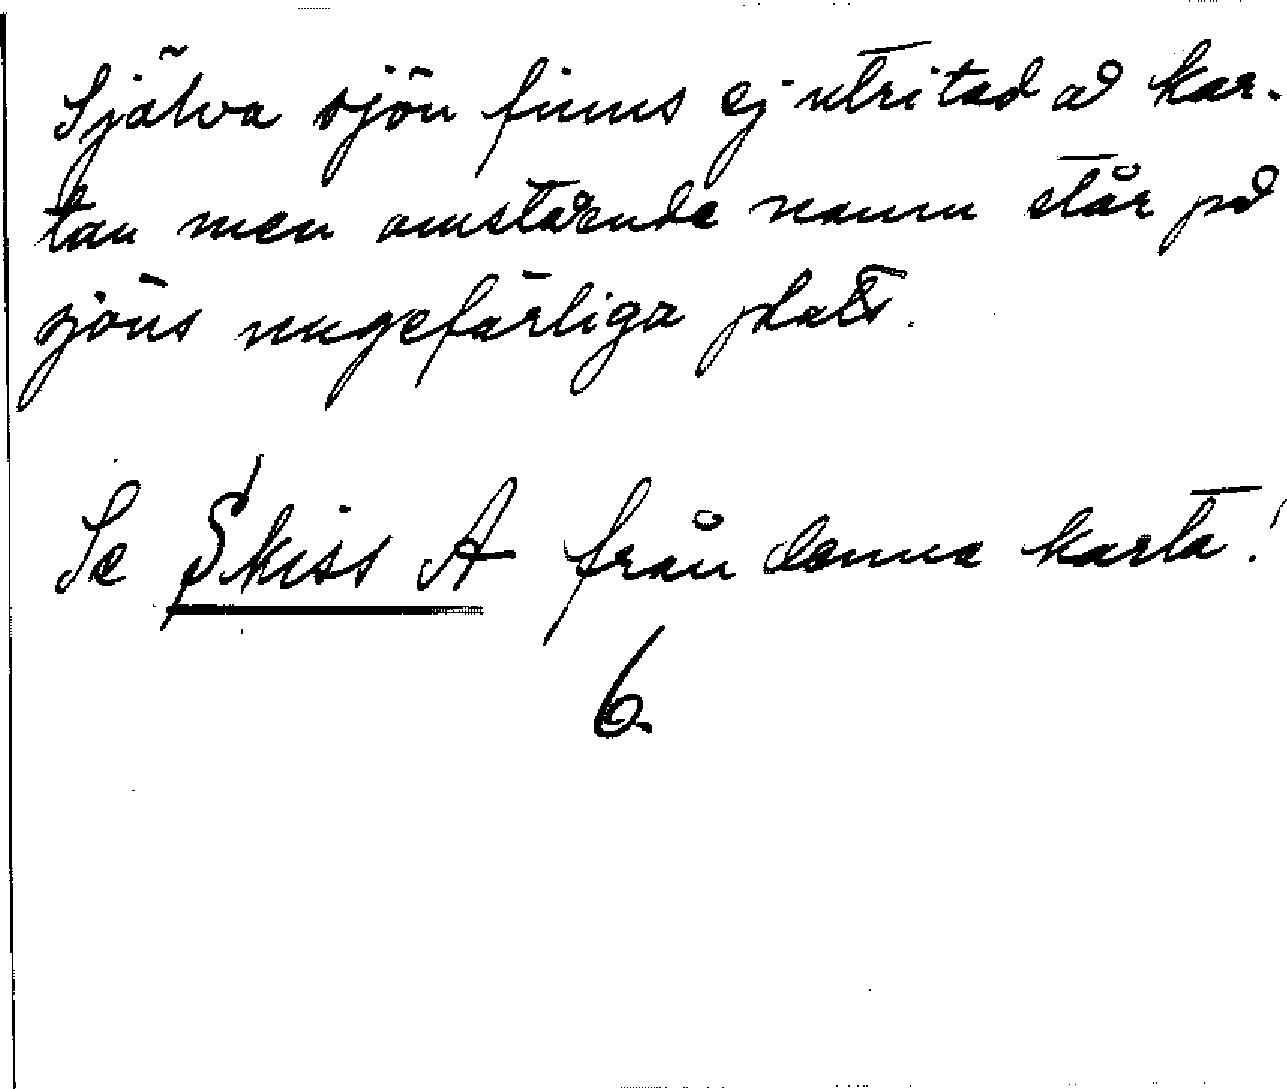 Själva sjön finns ej utritad å kar-
tan men omstående namn står på
sjöns ungefärliga plats.
Se Skiss A från denna karta!
6.